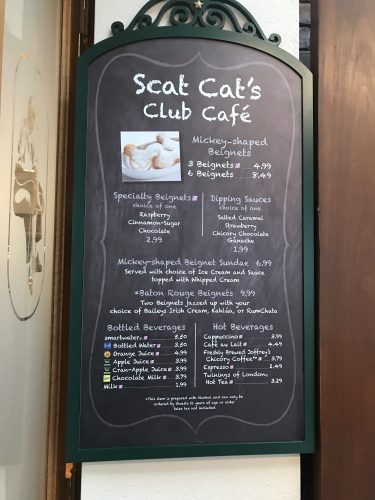 Scat Cat's
Club Café
Mickey-shaped
Beignets
3 Beignets 4.99
6 Beignets 8.49
Specialty Beignets
choice of one
Raspberry
Cinnamon-Sugar
Chocolate
2.99
Dipping Sauces
choice of one
Salted Caramel
Strawberry
Chicory Chocolate
Ganache
1.99
Mickey-shaped Beignet Sundae 6.99
Served with choice of Ice Cream and Sauce
topped with Whipped Cream
*Baton Rouge Beignets 9.99
Two Beignets jazzed up your
choice of Baileys Irish Cream, Kahlúa, or RumChata
Bottled Beverages
smartwater 5.50
Bottled Water 3.50
Orange Juice 4.99
Apple Juice 3.99
Cran-Apple Juice 3.99
Chocolate Milk 3.79
Milk 1.99
Hot Beverages
Cappuccino 3.99
Café au Lait 4.49
Freshly Brewed Joffrey's
Chicory Coffee 3.79
Espresso 2.49
Twinings of London
Hot Tea 3.29
*This item is prepared with Alcohol and can only be
ordered by Guests 21 years of age or older
Sales tax not included